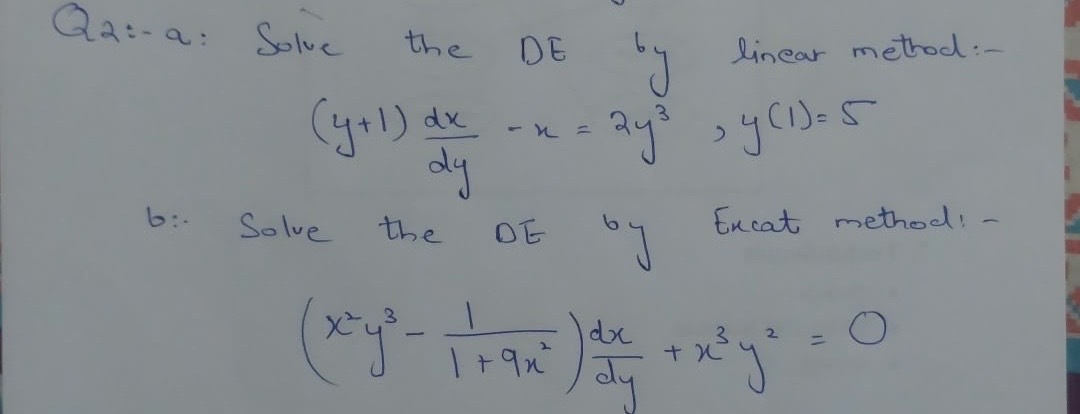 Q2:- a: Solve the DE by linear method:-
(y+1) dx/dy - x = 2y³ , y(1)= 5
b:. Solve the DE by Excat method: -
(x²y³ - 1/(1+9x²)) dx/dy + x³y² = 0